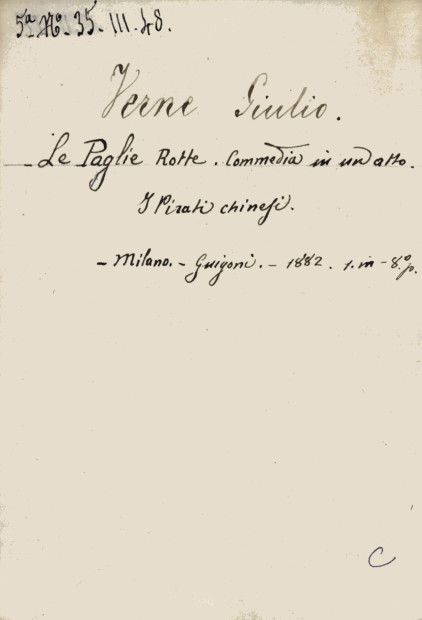 5ª Nº. 35. III. 48.
Verne Giulio.
- Le Paglie Rotte. Commedia in un atto.
I Pirati chinesi.
- Milano. - Guigoni. - 1882. 1. in - 8.º p.
C